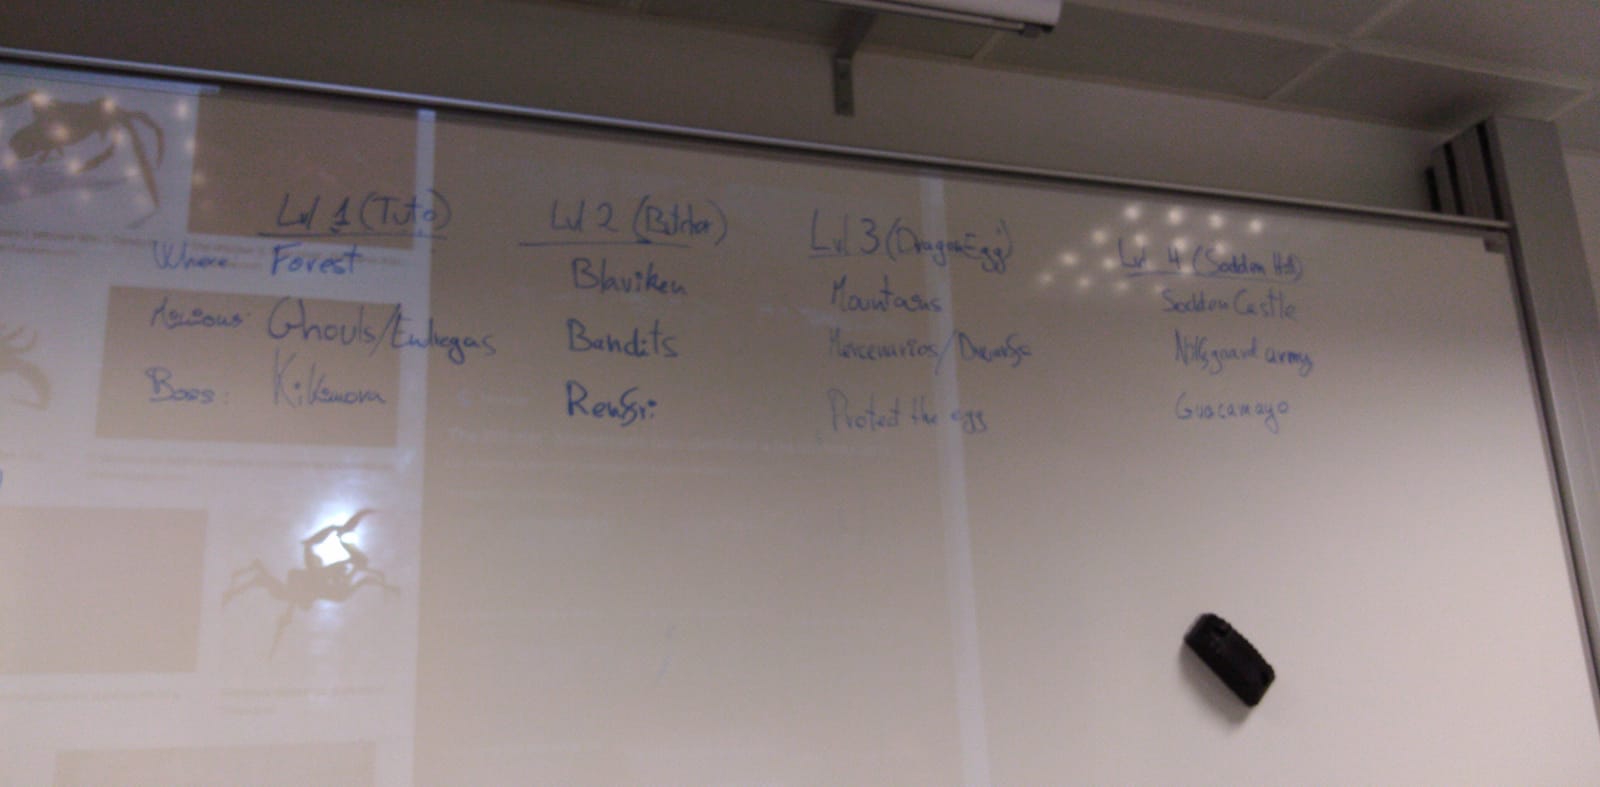 Lvl 1 (Tuto) Lvl 2 (Butcher) Lvl 3 (Dragon Egg) Lvl 4 (Sodden Hill)
Where: Forest Blaviken Mountains Sodden Castle
Minions: Ghouls/Endregas Bandits Mercenarios/Dwarfs Nilfgaard army
Boss: Kikimora Renfri Protect the egg Guacamayo